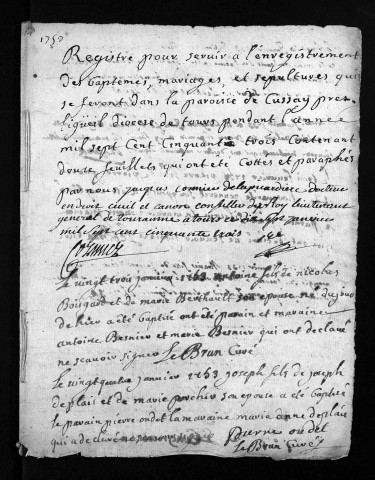 1753
Registre pour servir à l'enregistrement
des baptêmes, mariages, et sepultures qui
se feront dans la paroisse de Cussay pres
ligueil diocese de tours pendant l'année
mil sept Cent Cinquante trois Contenant
douze feuillets qui ont été Cottes et paraphés
par nous jacques cormier delapicardiere docteur
en droit civil et canon conseiller du Roy lieutenant
general de touraine a tours ce dix sept janvier
mil sept cent cinquante trois
Cormier
Le vingt trois janvier 1753 antoine fils de nicolas
Bougard et de marie Berthault son epouse né du jour
de hier a été baptisé ont été parain et maraine
antoine Besnier et marie Besnier qui ont declaré
ne scavoir signer Le Brun Curé
Le vingt quatre janvier 1753 joseph fils de joseph
deplais et de marie porchier son epouse a été baptisé
le parain pierre ondet la maraine marie anne deplais
qui a declaré ne scavoir signer
Pierre ondet
le Brun Curé